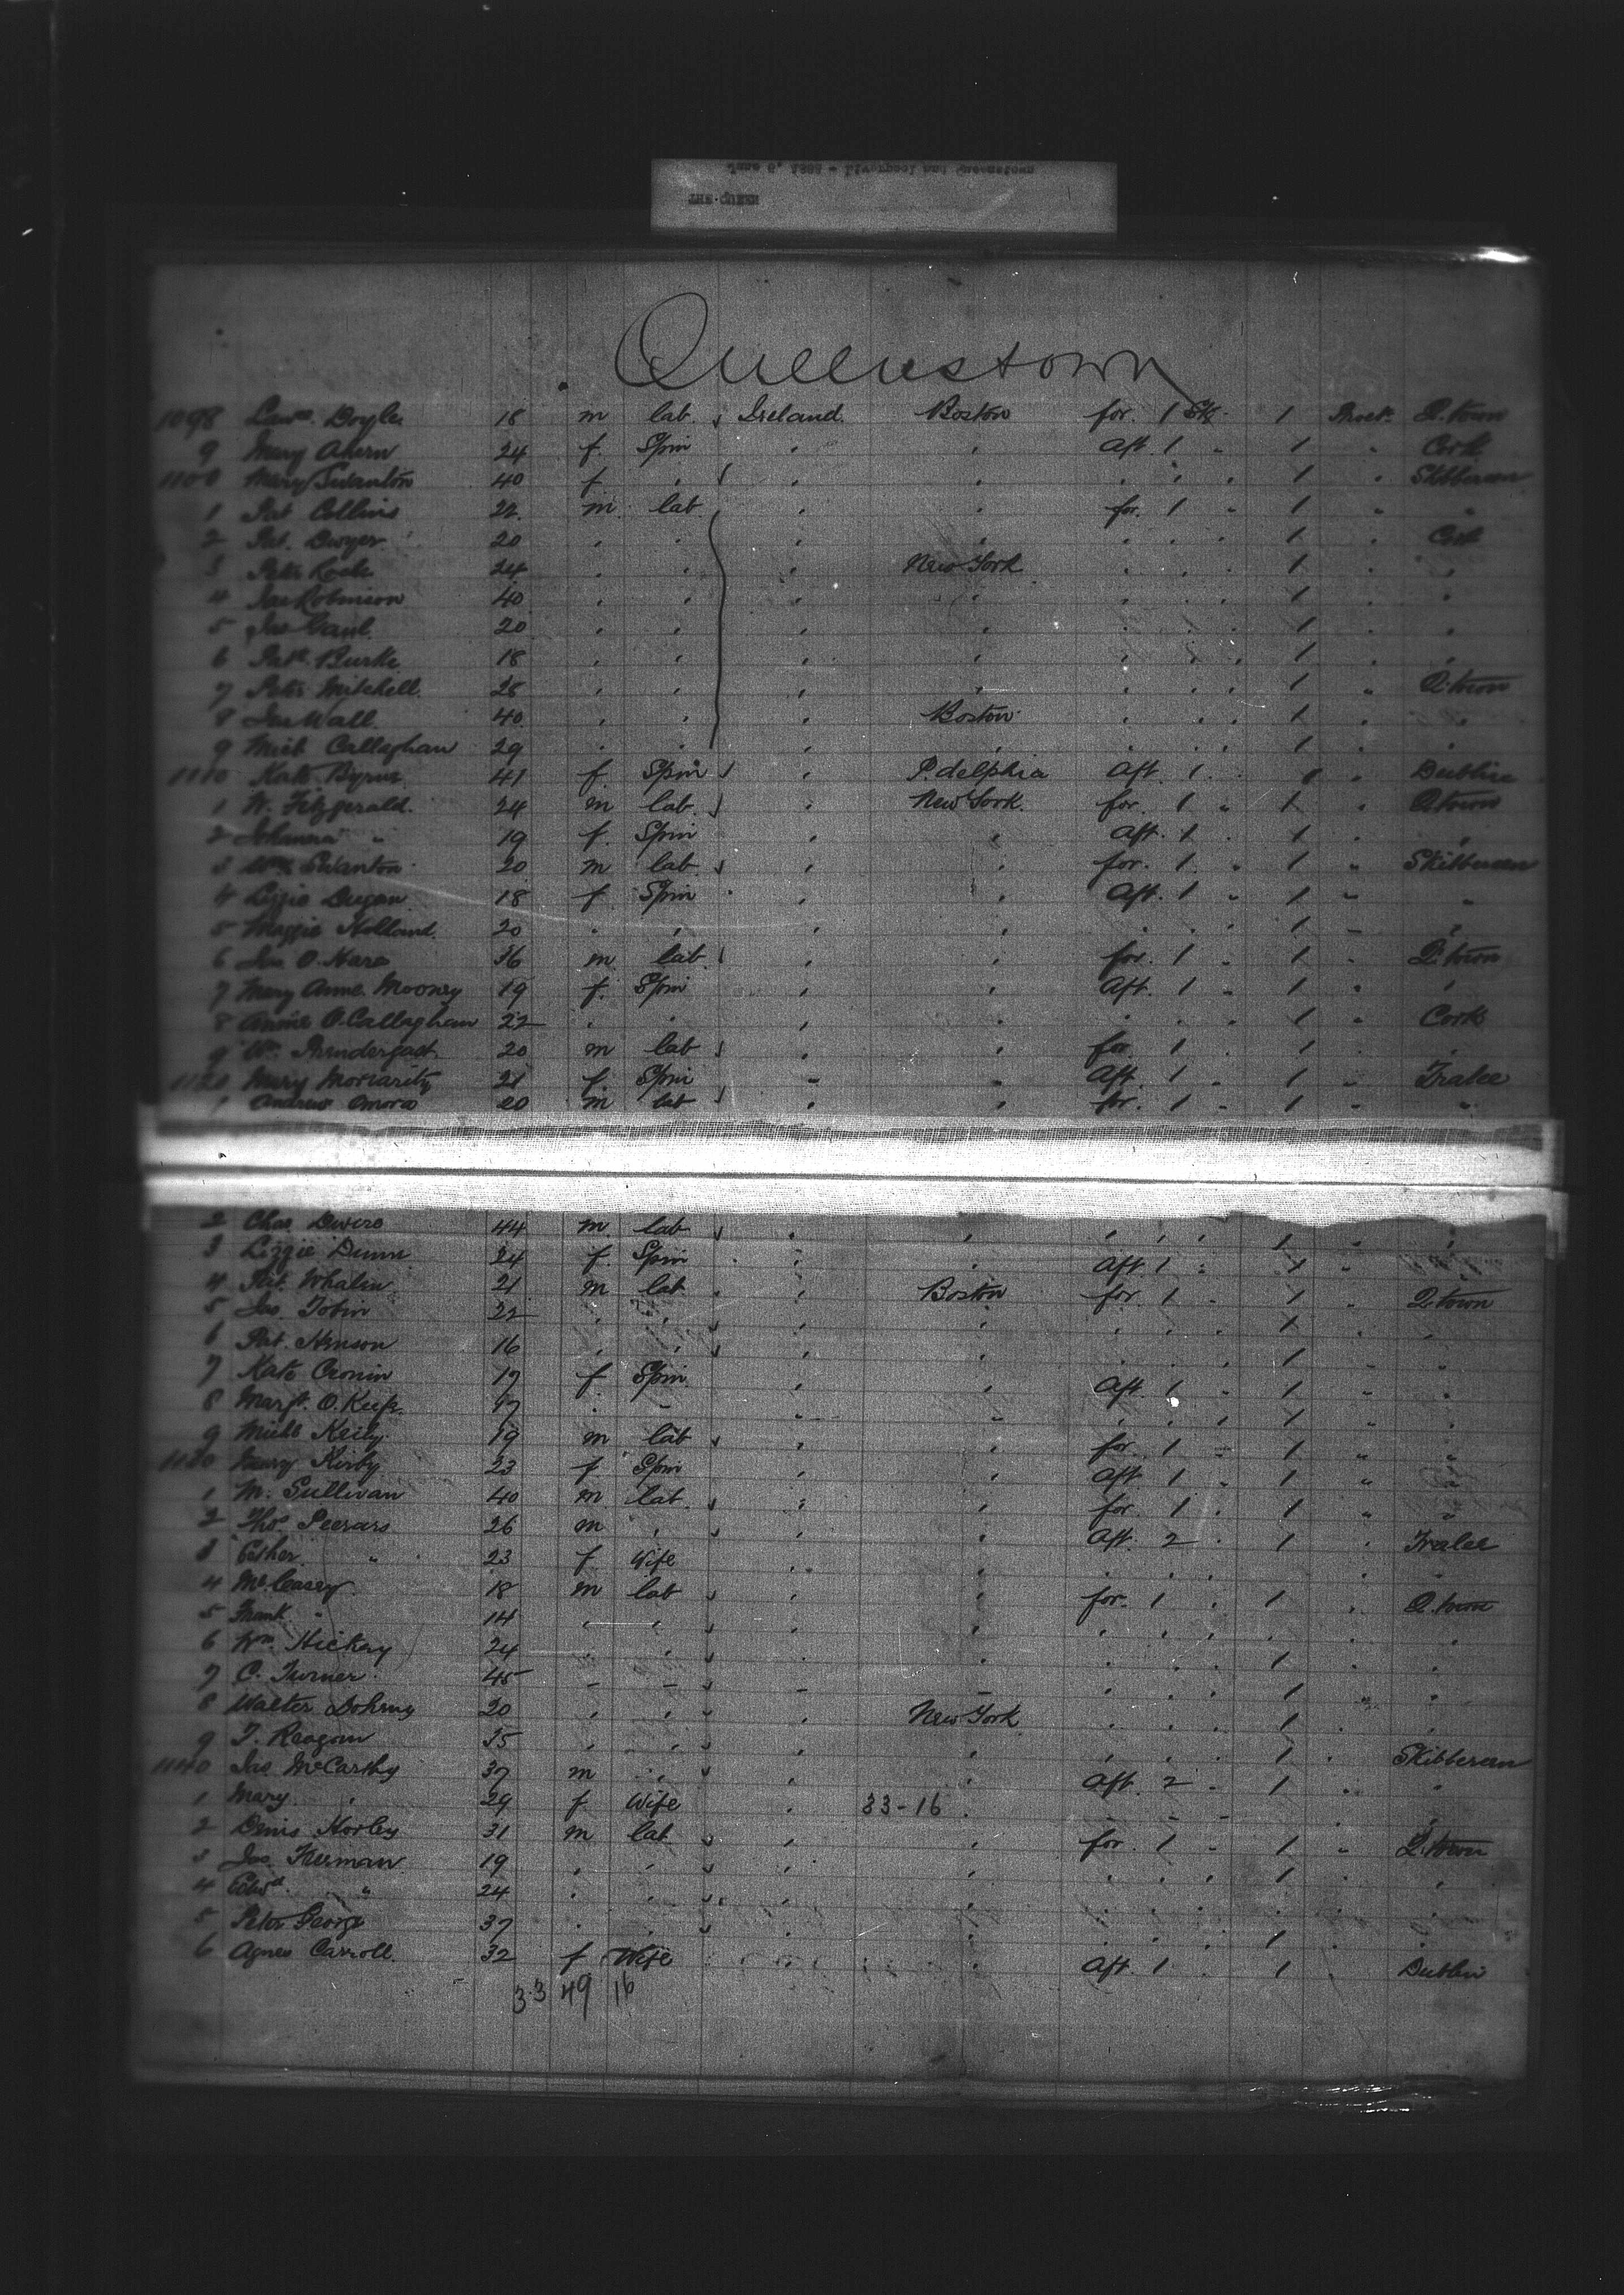 THE QUEEN
Queenstown
1098 Lawce. Doyle 18 m lab Ireland. Boston for. 1 Stg. 1 Q.town
9 Mary Ahern 24 f. Spin " " Aft. 1 " 1 " Cork
1100 Mary Swanton 40 f " " " " " " 1 " Skibbereen
1 Pat Collins 22. m. lab " " for. 1 " 1 " "
2 Pat. Dwyer 20 " " " " " " " 1 " Cork
3 Pat. 24 " " " New York " " " 1 " "
4 Jas Robinson 40 " " " " " " " 1 " "
5 Jas 20 " " " " " " " 1 " "
6 Patk. Burke 18 " " " " " " " 1 " "
7 Peter Mitchell. 28 " " " " " " " 1 " Q.town
8 Jas Wall 40. " " " Boston " " " 1 " "
9 Mich Callaghan 29 " " " " " " " 1 " "
1110 Kate Byrne 41 f Spin " P.delphia Aft. 1 " 1 " Dublin
1 W. Fitzgerald. 24 m lab " New York. for. 1 " 1 " Q.town
2 Johanna " 19 f. Spin " " Aft. 1 " 1 " "
3 Wm. Swanton 20 m lab " " for. 1 " 1 " Skibbereen
4 Lizzie Dugan 18 f Spin " " Aft. 1 " 1 " "
5 Maggie Holland. 20 " " " " " " " 1 " "
6 Jas. O.Hara 36 m. lab " " for. 1 " 1 " Q.town
7 Mary Anne. Mooney 19 f. Spin " " Aft. 1 " 1 " "
8 Annie O.Callaghan 22 " " " " " " " 1 " Cork
9 Wm. Prendergast 20 m lab " " for 1 " 1 " "
1120 Mary Moriarity 21 f. Spin " " Aft. 1 " 1 " Tralee
1 Andrew 20 m lab " " for. 1 " 1 " "
2 Chas. 44 m. lab " " " " " 1 " "
3 Lizzie Dunn 24 f. Spin " " Aft 1 " 1 " "
4 Pat. Whalen 21 m lab " Boston for 1 " 1 " Q.town
5 Jas. Tobin 22 " " " " " " " 1 " "
6 Pat. Henson 16 " " " " " " " 1 " "
7 Kate Cronin 17 f Spin. " " Aft. 1 " 1 " "
8 Margt. O.Keefe. 17 " " " " " " " 1 " "
9 Michl Keily. 19 m lab " " for. 1 " 1 " "
1130 Mary Kirby 23 f Spin " " Aft 1 " 1 " "
1 M. Sullivan 40 m lab. " " for 1 " 1 " "
2 Thos. Peerars 26 m " " " Aft. 2 " 1 " Tralee
3 Esther " 23 f Wife " " " " " " " "
4 Mc.Casey 18 m lab " " for. 1 " 1 " Q.town
5 Frank " 14 " " " " " " " " " "
6 Wm. Hickey 24 " " " " " " " 1 " "
7 C. Turner 45 " " " " " " " 1 " "
8 Walter Doheny 20 " " " New York " " " 1 " "
9 T. Reagan 35 " " " " " " " 1 " Skibbereen
1140 Jas. McCarthy 37 m " " " Aft. 2 " 1 " "
1 Mary. " 29 f Wife " 33-16 " " " " " "
2 Denis Horley 31 m lab " " for 1 " 1 " Q.town
3 Jas. 19 " " " " " " " 1 " "
4 Edwd. " 24 " " " " " " " " " "
5 Peter George 37 " " " " " " " 1 " "
6 Agnes Carroll. 32 f Wife " " Aft. 1 " 1 " Dublin
33 49 16